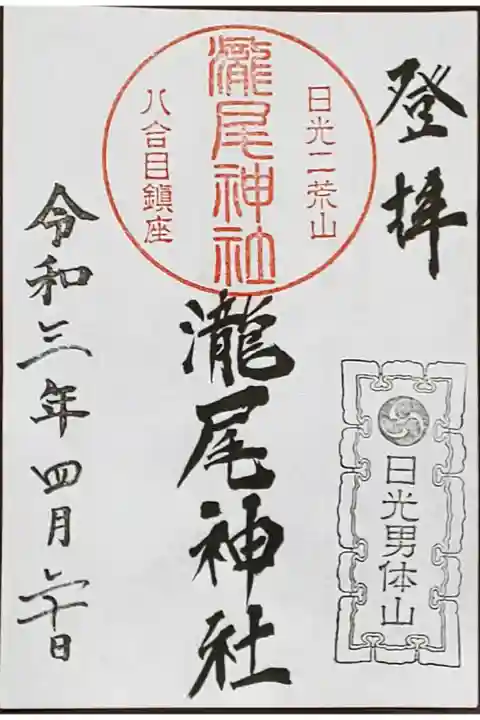 登拝
日光男体山
日光二荒山
瀧尾神社
八合目鎮座
瀧尾神社
令和三年四月二十日